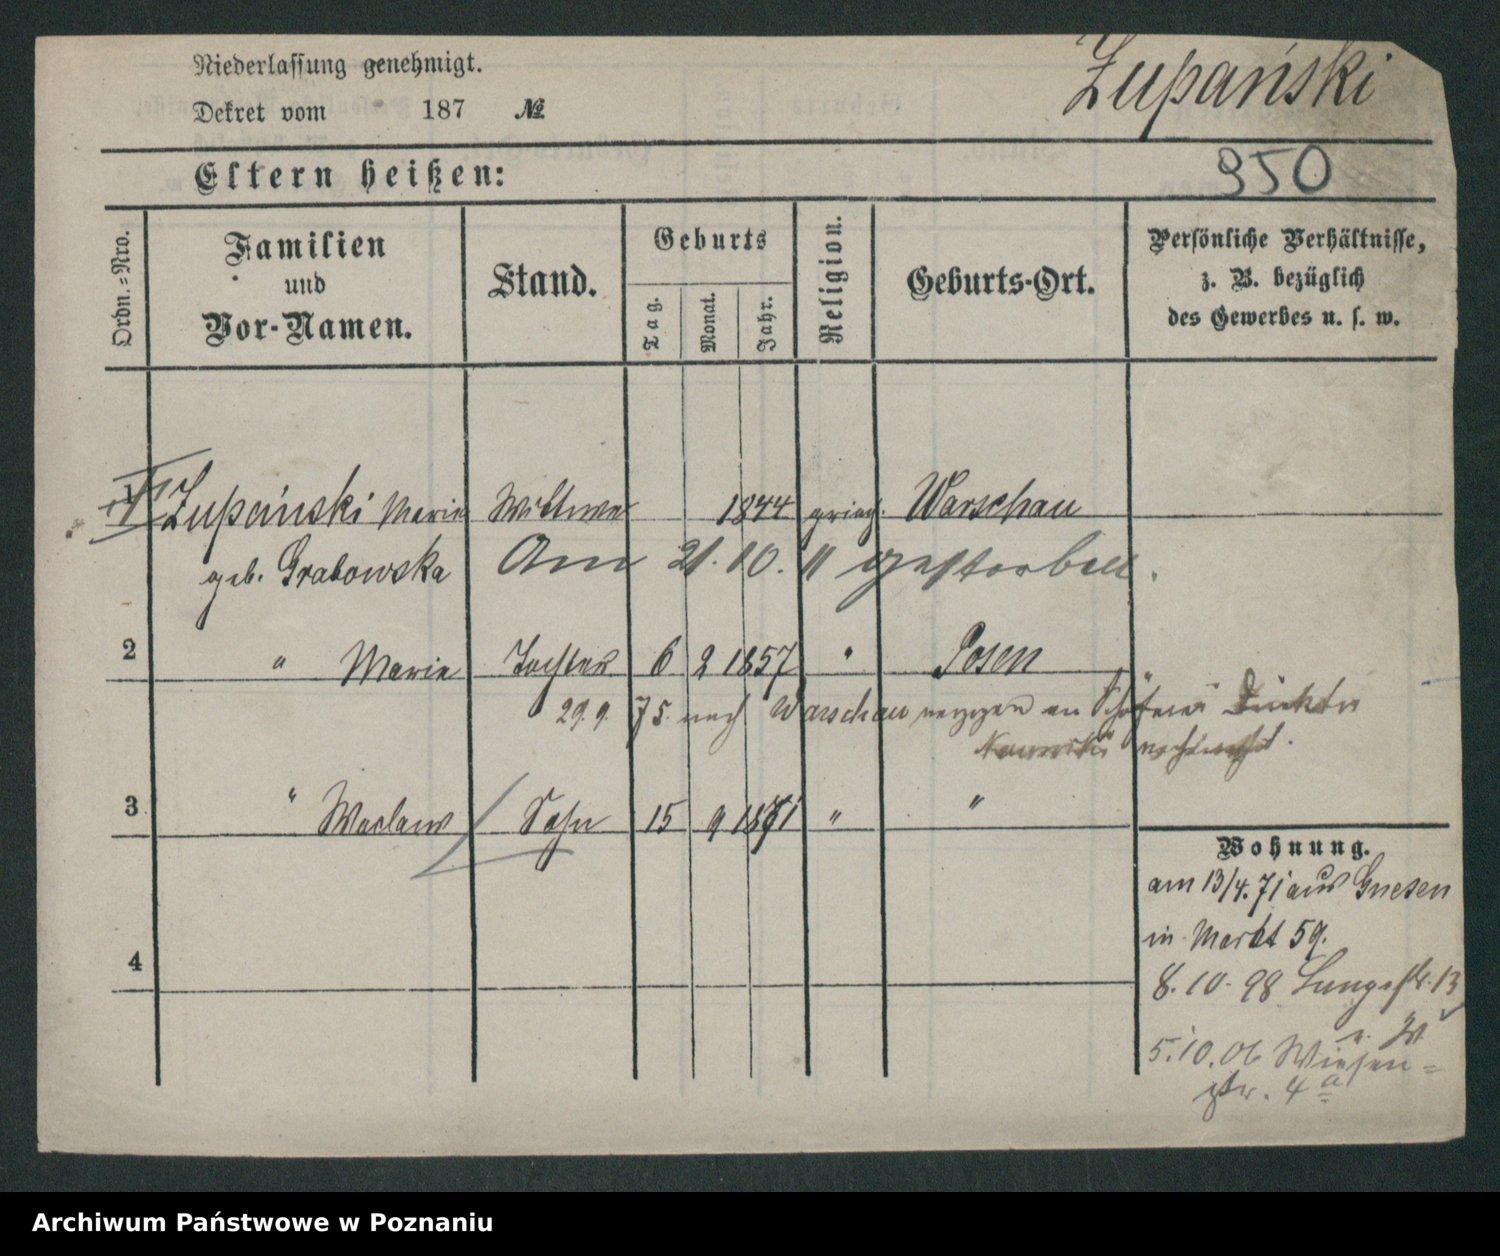 Niederlassung genehmigt.
Żupański
Dekret vom 187 №
Eltern heißen:
950
Ordn.-Nro.
Familien
und
Vor-Namen.
Stand.
Geburts
Tag.
Monat.
Jahr.
Religion.
Geburts-Ort.
Persönliche Verhältnisse,
z. B. bezüglich
des Gewerbes u. s. w.
1 Żupański Marie Wittwe 1844 griech. Warschau
geb. Grabowska Am 21. 10. 11 gestorben.
2 " Marie Tochter 6 2 1857 " Posen
29. 9. 75. nach Warschau verzogen an
3 " Waclaw Sohn 15 9 1871 " "
Wohnung.
am 13/4. 71 aus Gnesen
in Markt 59.
8. 10. 98 Langestr. 13
5. 10. 06 Wiesen=
str. 4a
4
Archiwum Państwowe w Poznaniu